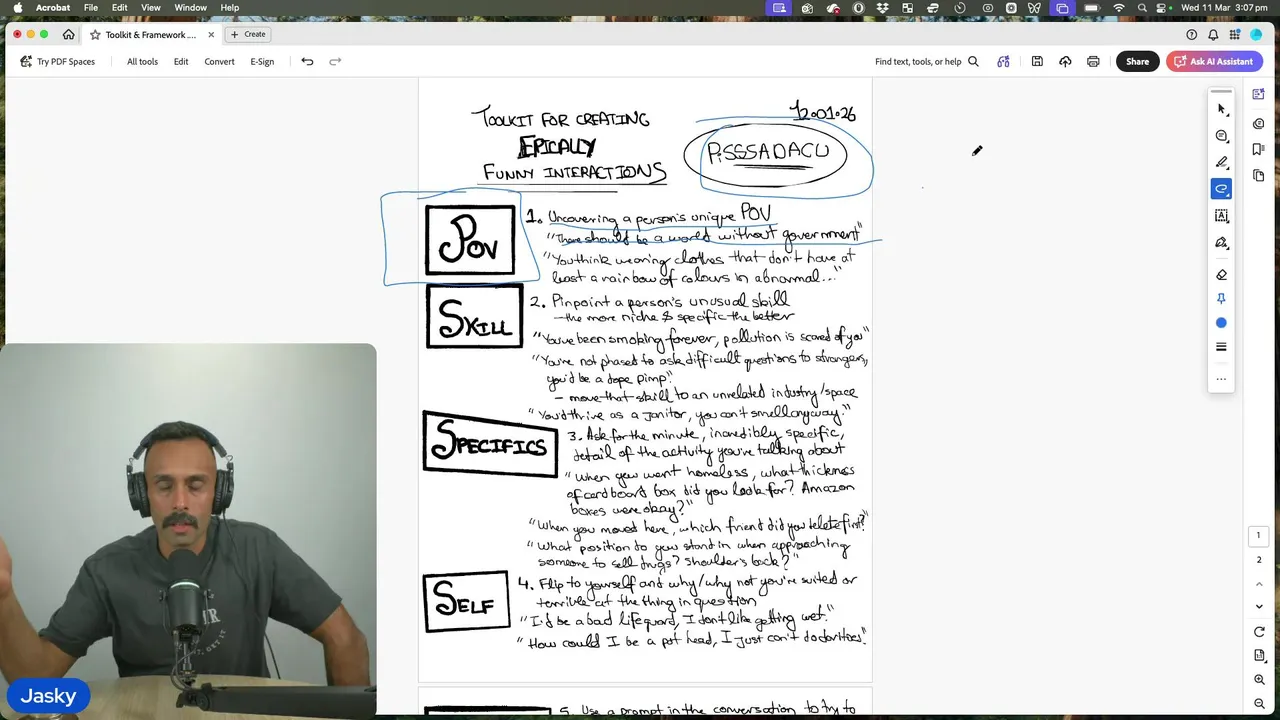 Acrobat File Edit View Window Help
Wed 11 Mar 3:07 pm
Toolkit & Framework ....
+ Create
Try PDF Spaces All tools Edit Convert E-Sign
Find text, tools, or help
Share
Ask AI Assistant
12.01.26
TOOLKIT FOR CREATING
EPICALLY
FUNNY INTERACTIONS
P.SSSADACU
POV
1. Uncovering a person's unique POV
"There should be a world without government"
"You think wearing clothes that don't have at
least a rainbow of colours in abnormal..."
SKILL
2. Pinpoint a person's unusual skill
- the more niche & specific the better
"You've been smoking forever, pollution is scared of you"
"You're not phased to ask difficult questions to strangers,
you'd be a dope pimp."
- move that skill to an unrelated industry/space
"You'd thrive as a janitor, you can't smell anyway."
SPECIFICS
3. Ask for the minute, incredibly specific,
detail of the activity you're talking about
"When you went homeless, what thickness
of cardboard box did you look for? Amazon
boxes were okay?"
"When you moved here, which friend did you delete first?"
"What position do you stand in when approaching
someone to sell drugs? Shoulder's back?"
SELF
4. Flip to yourself and why/why not you're suited or
terrible at the thing in question
"I'd be a bad lifeguard, I don't like getting wet."
"How could I be a pot head, I just can't do dorities"
5. Use a prompt in the conversation to try to
1
2
Jasky